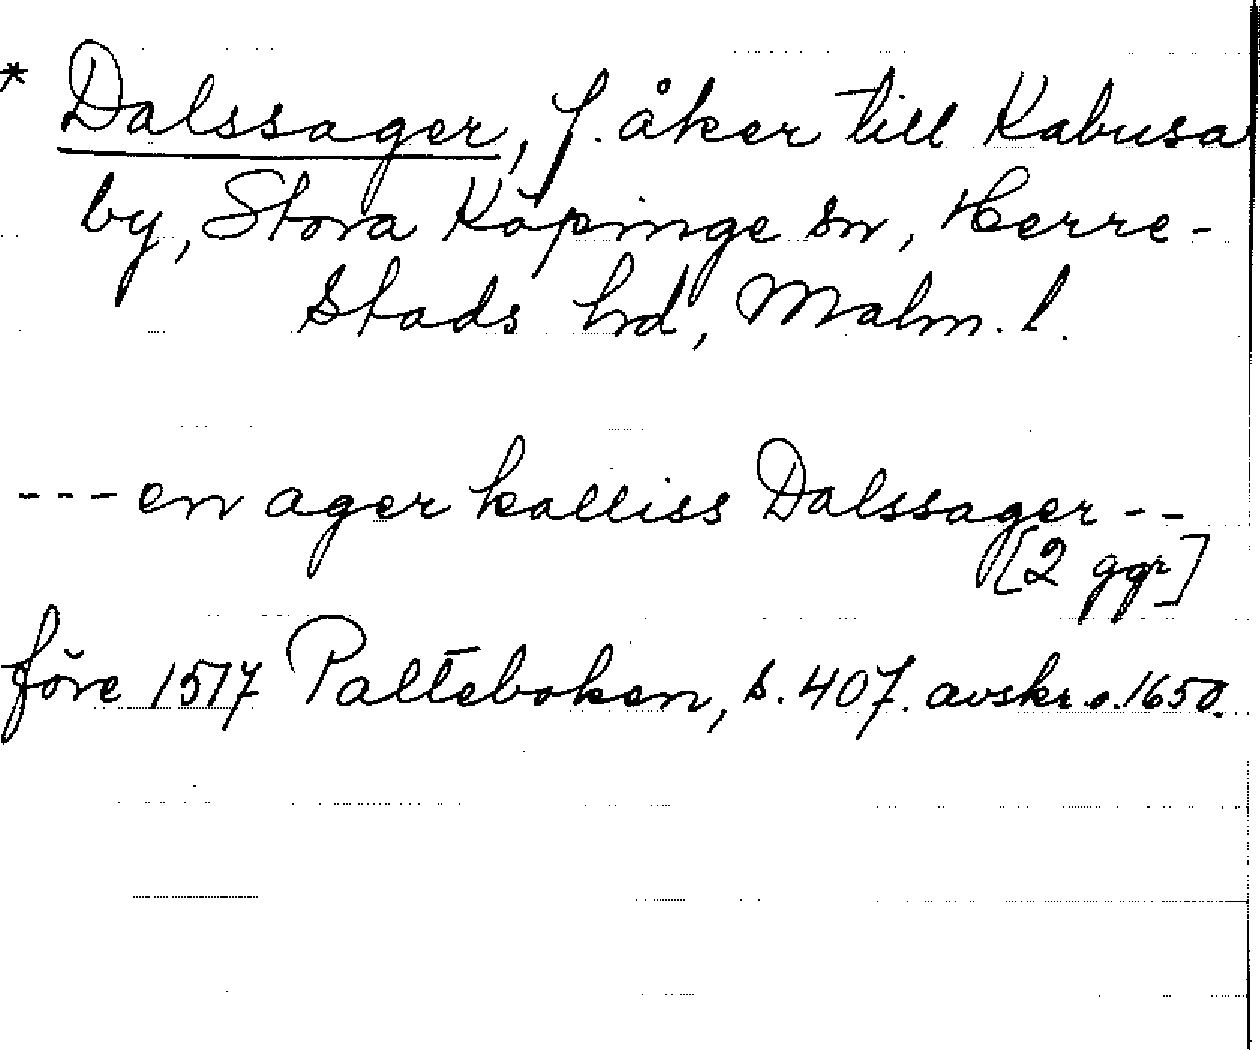 * Dalssager, f. åker till Kabusa
by, Stora Köpinge sn, Herre-
stads hd, Malm. l.
--- en ager kalliss Dalssager --
[2 ggr]
före 1517 Palteboken, s. 407. avskr. o. 1650.